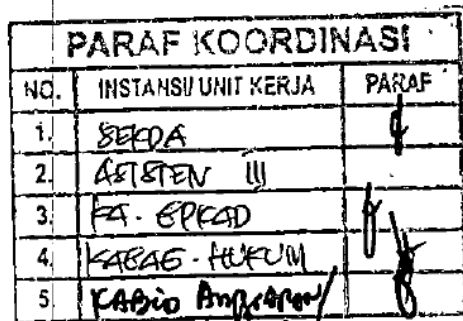 PARAF KOORDINASI
NO. INSTANSI/ UNIT KERJA PARAF
1. SEKDA
2. ASISTEN III
3. KA. BPKAD
4. KABAG. HUKUM
5. KABID